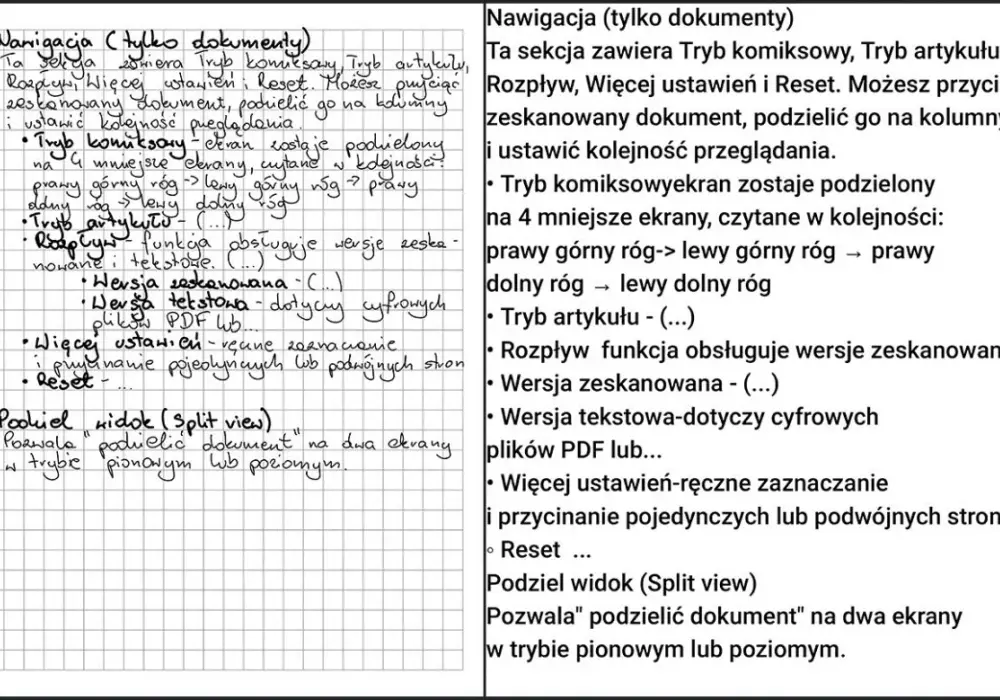 Nawigacja (tylko dokumenty)
Ta sekcja zawiera Tryb komiksowy, Tryb artykułu,
Rozpływ, Więcej ustawień i Reset. Możesz przyciąć
zeskanowany dokument, podzielić go na kolumny
i ustawić kolejność przeglądania.
• Tryb komiksowy - ekran zostaje podzielony
na 4 mniejsze ekrany, czytane w kolejności:
prawy górny róg -> lewy górny róg -> prawy
dolny róg -> lewy dolny róg
• Tryb artykułu - (...)
• Rozpływ - funkcja obsługuje wersje zeska-
nowane i tekstowe. (...)
• Wersja zeskanowana - (...)
• Wersja tekstowa - dotyczy cyfrowych
plików PDF lub...
• Więcej ustawień - ręczne zaznaczanie
i przycinanie pojedynczych lub podwójnych stron
• Reset - ...
Podziel widok (Split view)
Pozwala "podzielić dokument" na dwa ekrany
w trybie pionowym lub poziomym.
Nawigacja (tylko dokumenty)
Ta sekcja zawiera Tryb komiksowy, Tryb artykułu
Rozpływ, Więcej ustawień i Reset. Możesz przyci
zeskanowany dokument, podzielić go na kolumny
i ustawić kolejność przeglądania.
• Tryb komiksowyekran zostaje podzielony
na 4 mniejsze ekrany, czytane w kolejności:
prawy górny róg-> lewy górny róg → prawy
dolny róg → lewy dolny róg
• Tryb artykułu - (...)
• Rozpływ funkcja obsługuje wersje zeskanowan
• Wersja zeskanowana - (...)
• Wersja tekstowa-dotyczy cyfrowych
plików PDF lub...
• Więcej ustawień-ręczne zaznaczanie
i przycinanie pojedynczych lub podwójnych stron
◦ Reset ...
Podziel widok (Split view)
Pozwala" podzielić dokument" na dwa ekrany
w trybie pionowym lub poziomym.